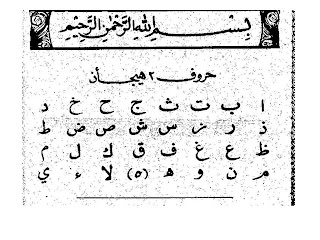 بِسْمِ اللهِ الرَّحْمٰنِ الرَّحِيْمِ
حروف ٢ هيجأن
ا ب ت ث ج ح خ د
ذ ر ز س ش ص ض ط
ظ ع غ ف ق ك ل م
م ن و ه (ة) لا ء ي